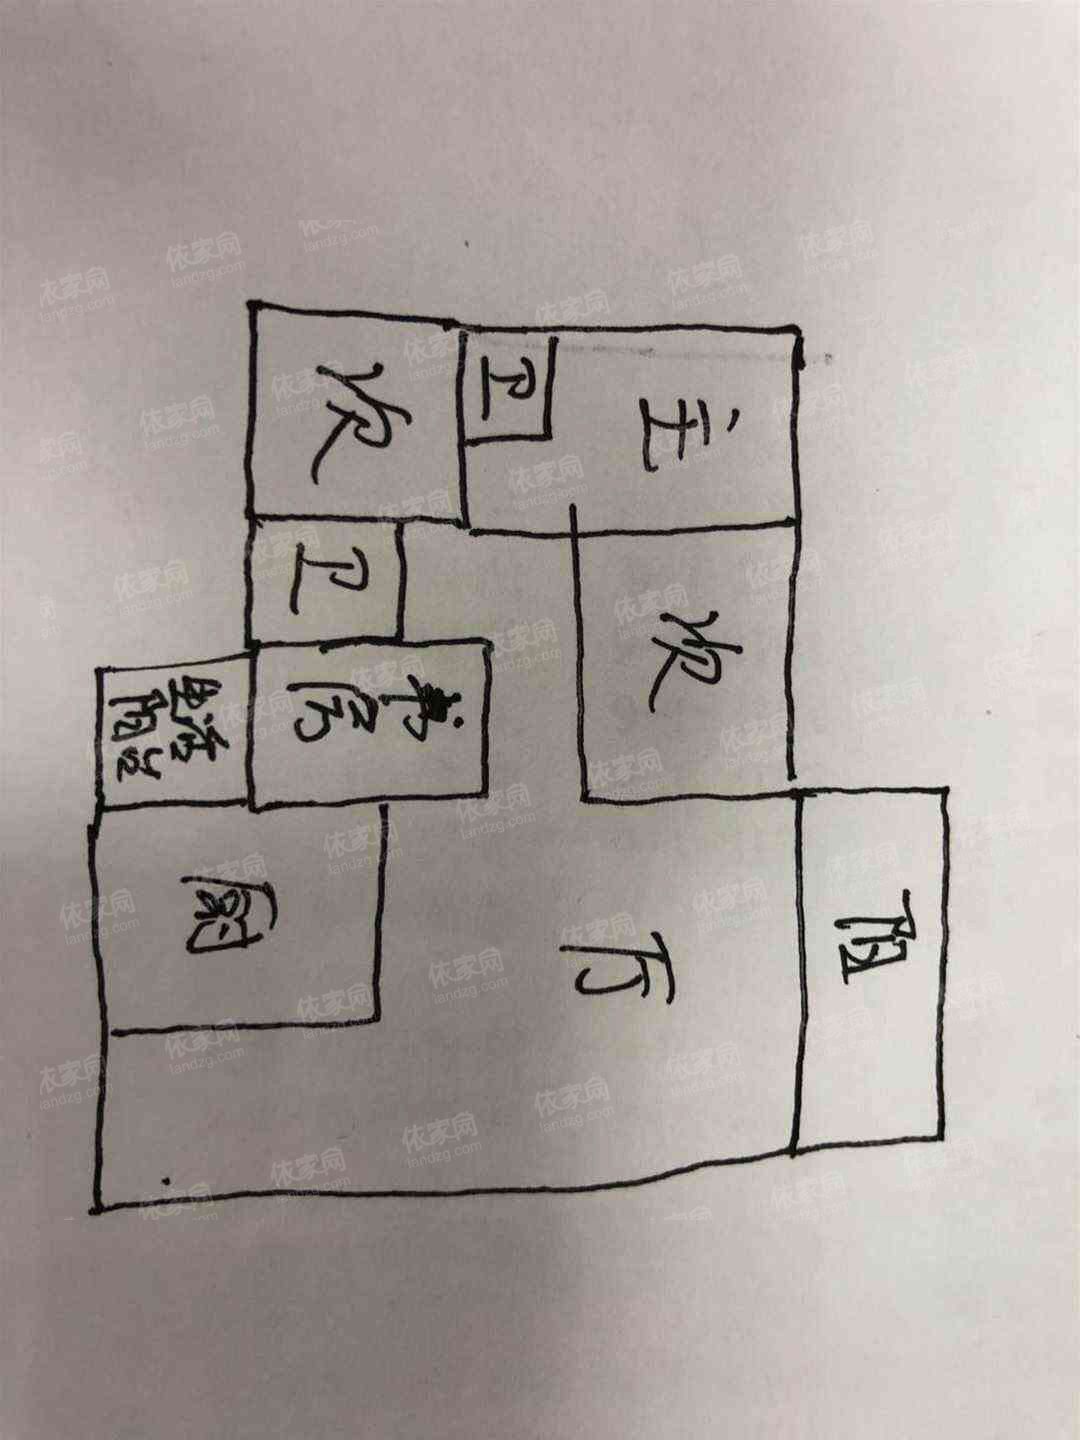 次
卫
主
卫
次
书
房
生活
阳台
厨
厅
阳
依家网
landzg.com